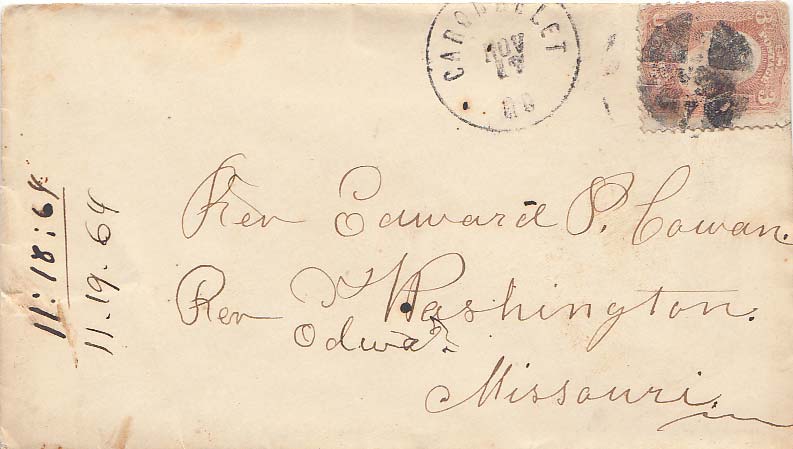 CARONDELET
NOV
17
MO
3 3
Rev Edward P. Cowan.
Rev Washington.
Odwa
Missouri.
11:18:64
11.19.64